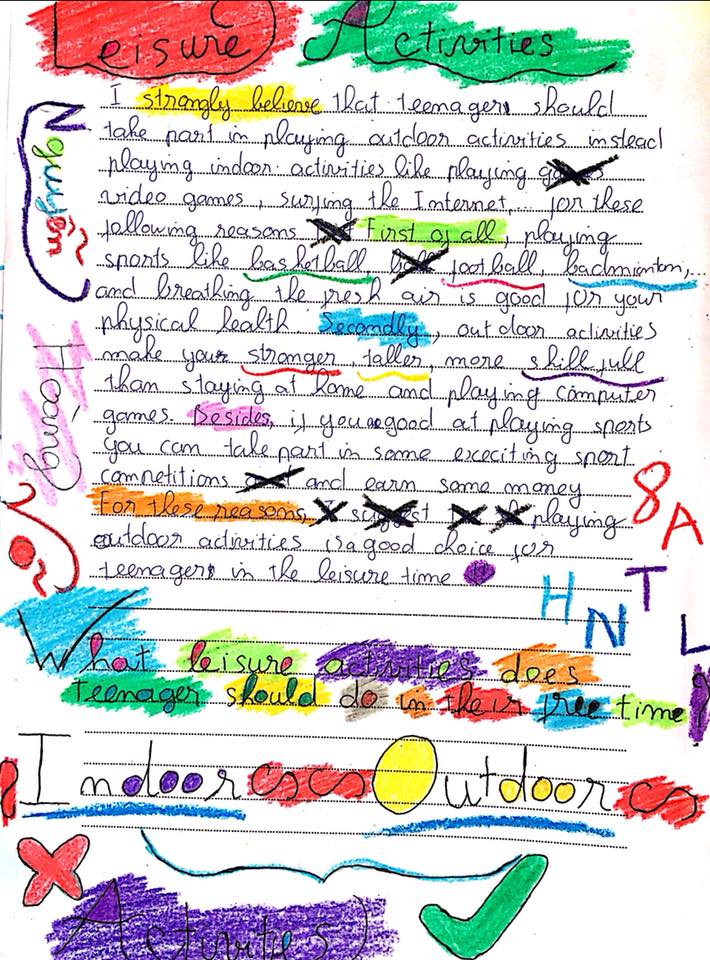 Leisure Activities
I strongly believe that teenagers should
take part in playing outdoor activities instead
playing indoor activities like playing
video games, surfing the Internet,... for these
following reasons First of all, playing
sports like basketball football, badmionton,...
and breathing the fresh air is good for your
physical health. Secondly, outdoor activities
make your stronger, taller, more skillfull
than staying at home and playing computer
games. Besides, if you are good at playing sports
you can take part in some execiting sport
competitions and earn some money
For these reasons, playing
outdoor activities is a good choice for
teenagers in the leisure time
Nguyễn
Hoàng
8A
HNTL
What leisure activities does
teenager should do in their free time?
Indoor Outdoor
Activities